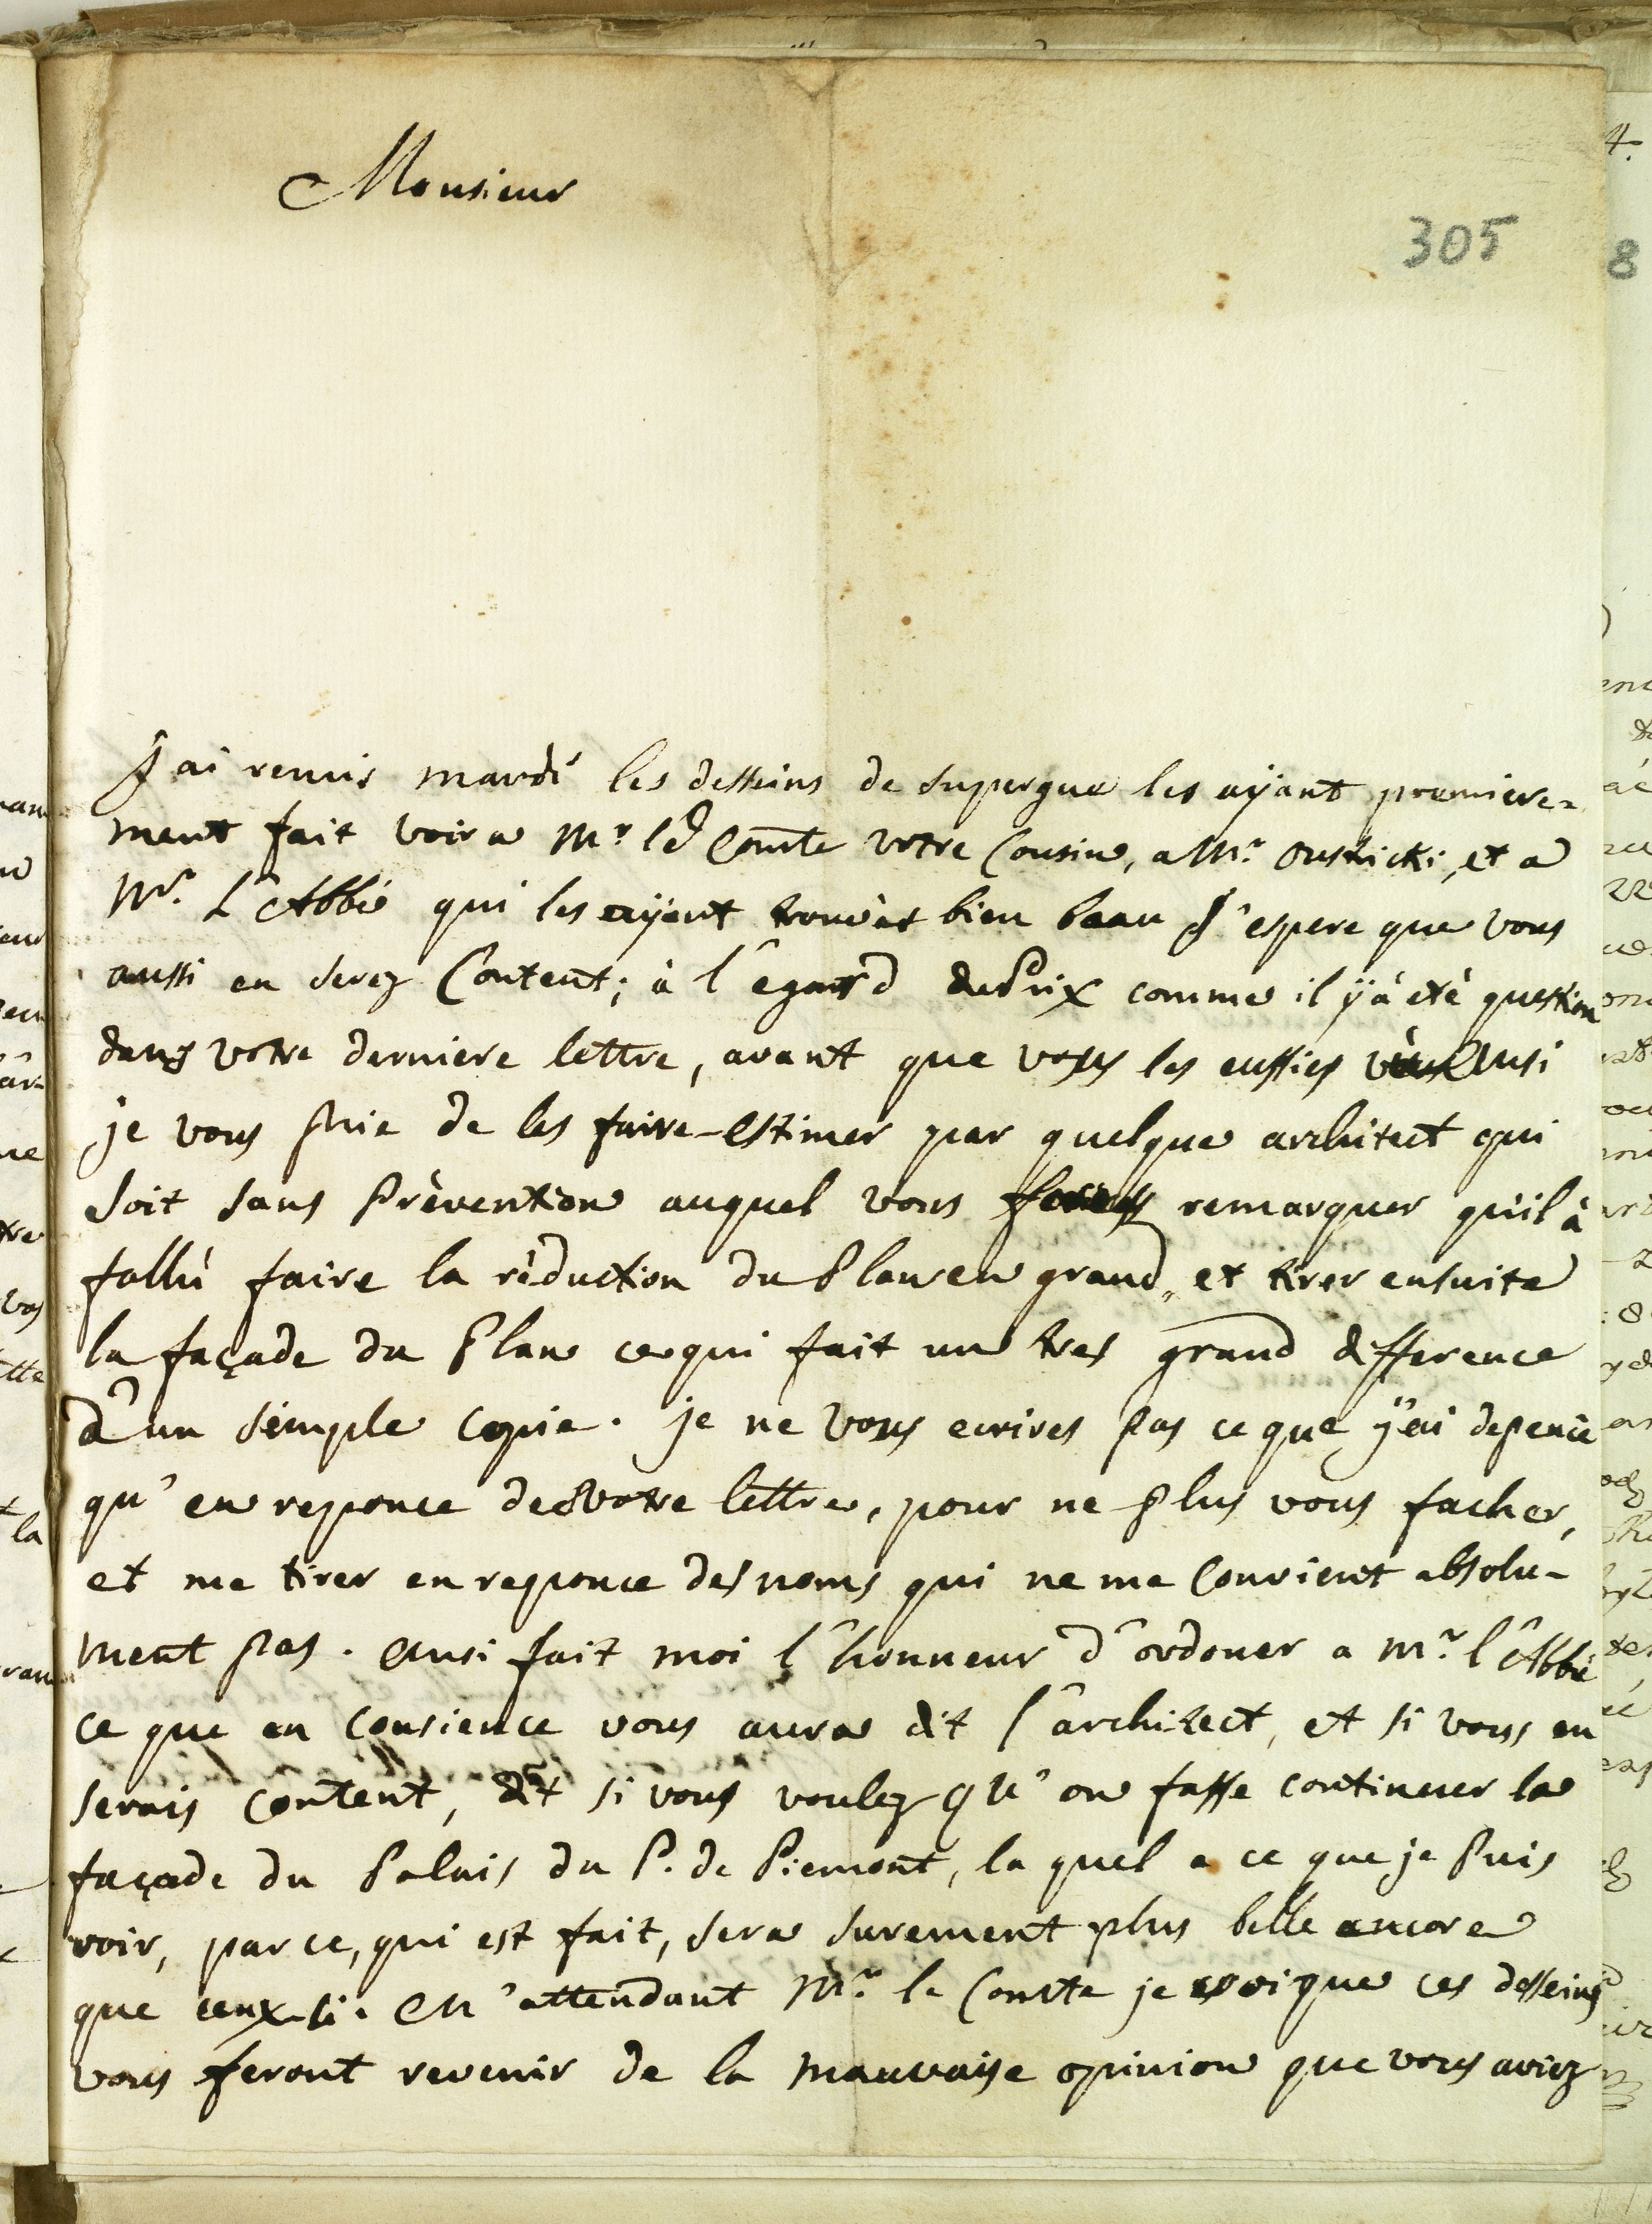 Monsieur
305
J'ai remis mardi les desseins de Supergue les aÿant premiere-
ment fait voir a Mr. le Comte votre Cousin, a Mr. Oustricki, et a
Mr. L'Abbé qui les aÿent trouvèt bien beau J'espere que vous
aussi en serez Content; à l'egard du Prix comme il ÿ à eté question
dans votre derniere lettre, avant que vous les eussies vùs Ausi
je vous Prie de les faire estimer par quelque architect qui
soit sans Prèvention auquel vous remarquer qu'il à
fallù faire la rèduction du Plan en grand, et tirer ensuite
la façade du Plan ce qui fait un tres grand difference
d'un simple Copie. je ne vous ecrives pas ce que j'ai depence
qu'en reponce de votre lettre, pour ne Plus vous facher,
et me tirer en reponce des noms qui ne me Convient absolu-
ment Pas. Ausi fait moi l'honneur d'ordoner a Mr. l'Abbé
ce que en Consience vous aura dit l'architect, et si vous en
serais Content, dit si vous voulez qu'on fasse continuer la
façade du Palais du P. de Piemont, la quel a ce que je Puis
voir, par ce, qui est fait, sera surement plus belle ancore
que ceux-ci. En'attendant Mr. le Comte je croi que ces desseins
vous feront revenir de la mauvaise opinion que vous aviez